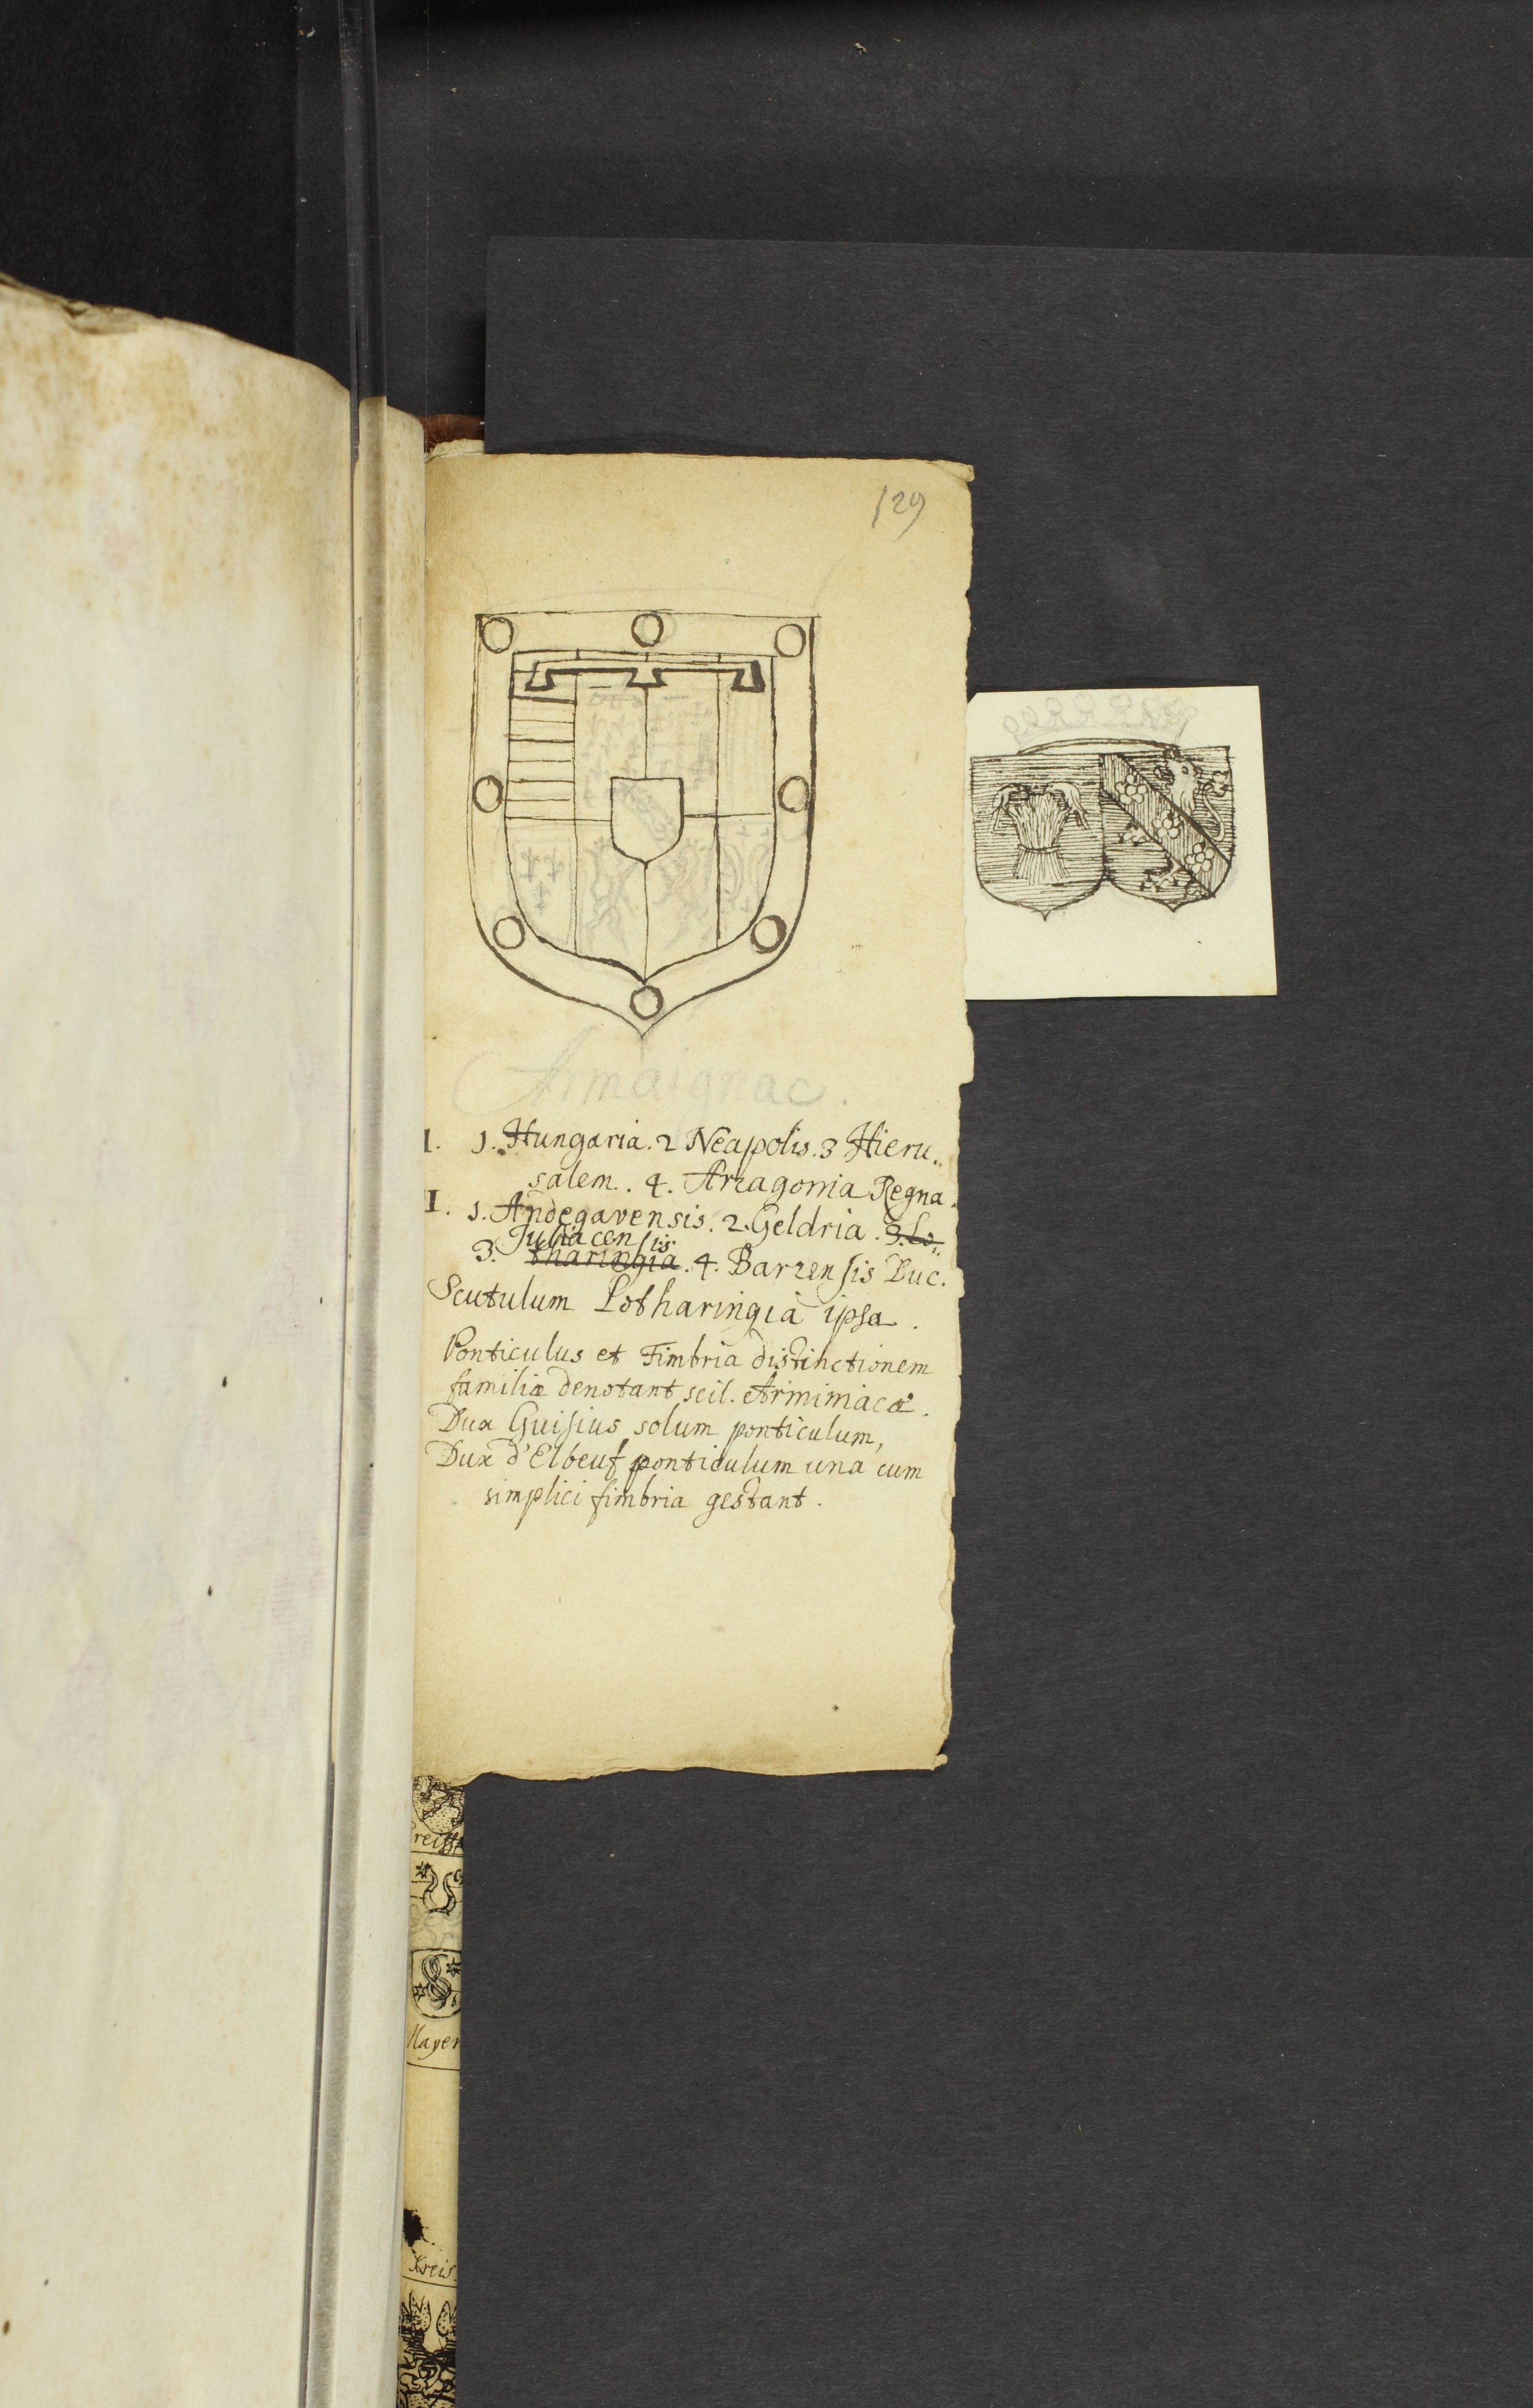 129
Armaignac.
I. 1. Hungaria. 2 Neapolis. 3 Hieru„
salem. 4. Arragonia Regna.
I. 1. Andegavensis. 2. Geldria. 3. Lo„
Juliacensis
3. tharingia. 4. Barrensis Duc.
Scutulum Lotharingia ipsa.
Ponticulus et Fimbria distinctionem
familiæ denotant scil. Arminiacæ.
Dux Guisius solum ponticulum,
Dux d'Elbeuf ponticulum una cum
simplici fimbria gestant.
Mayer
Kreis